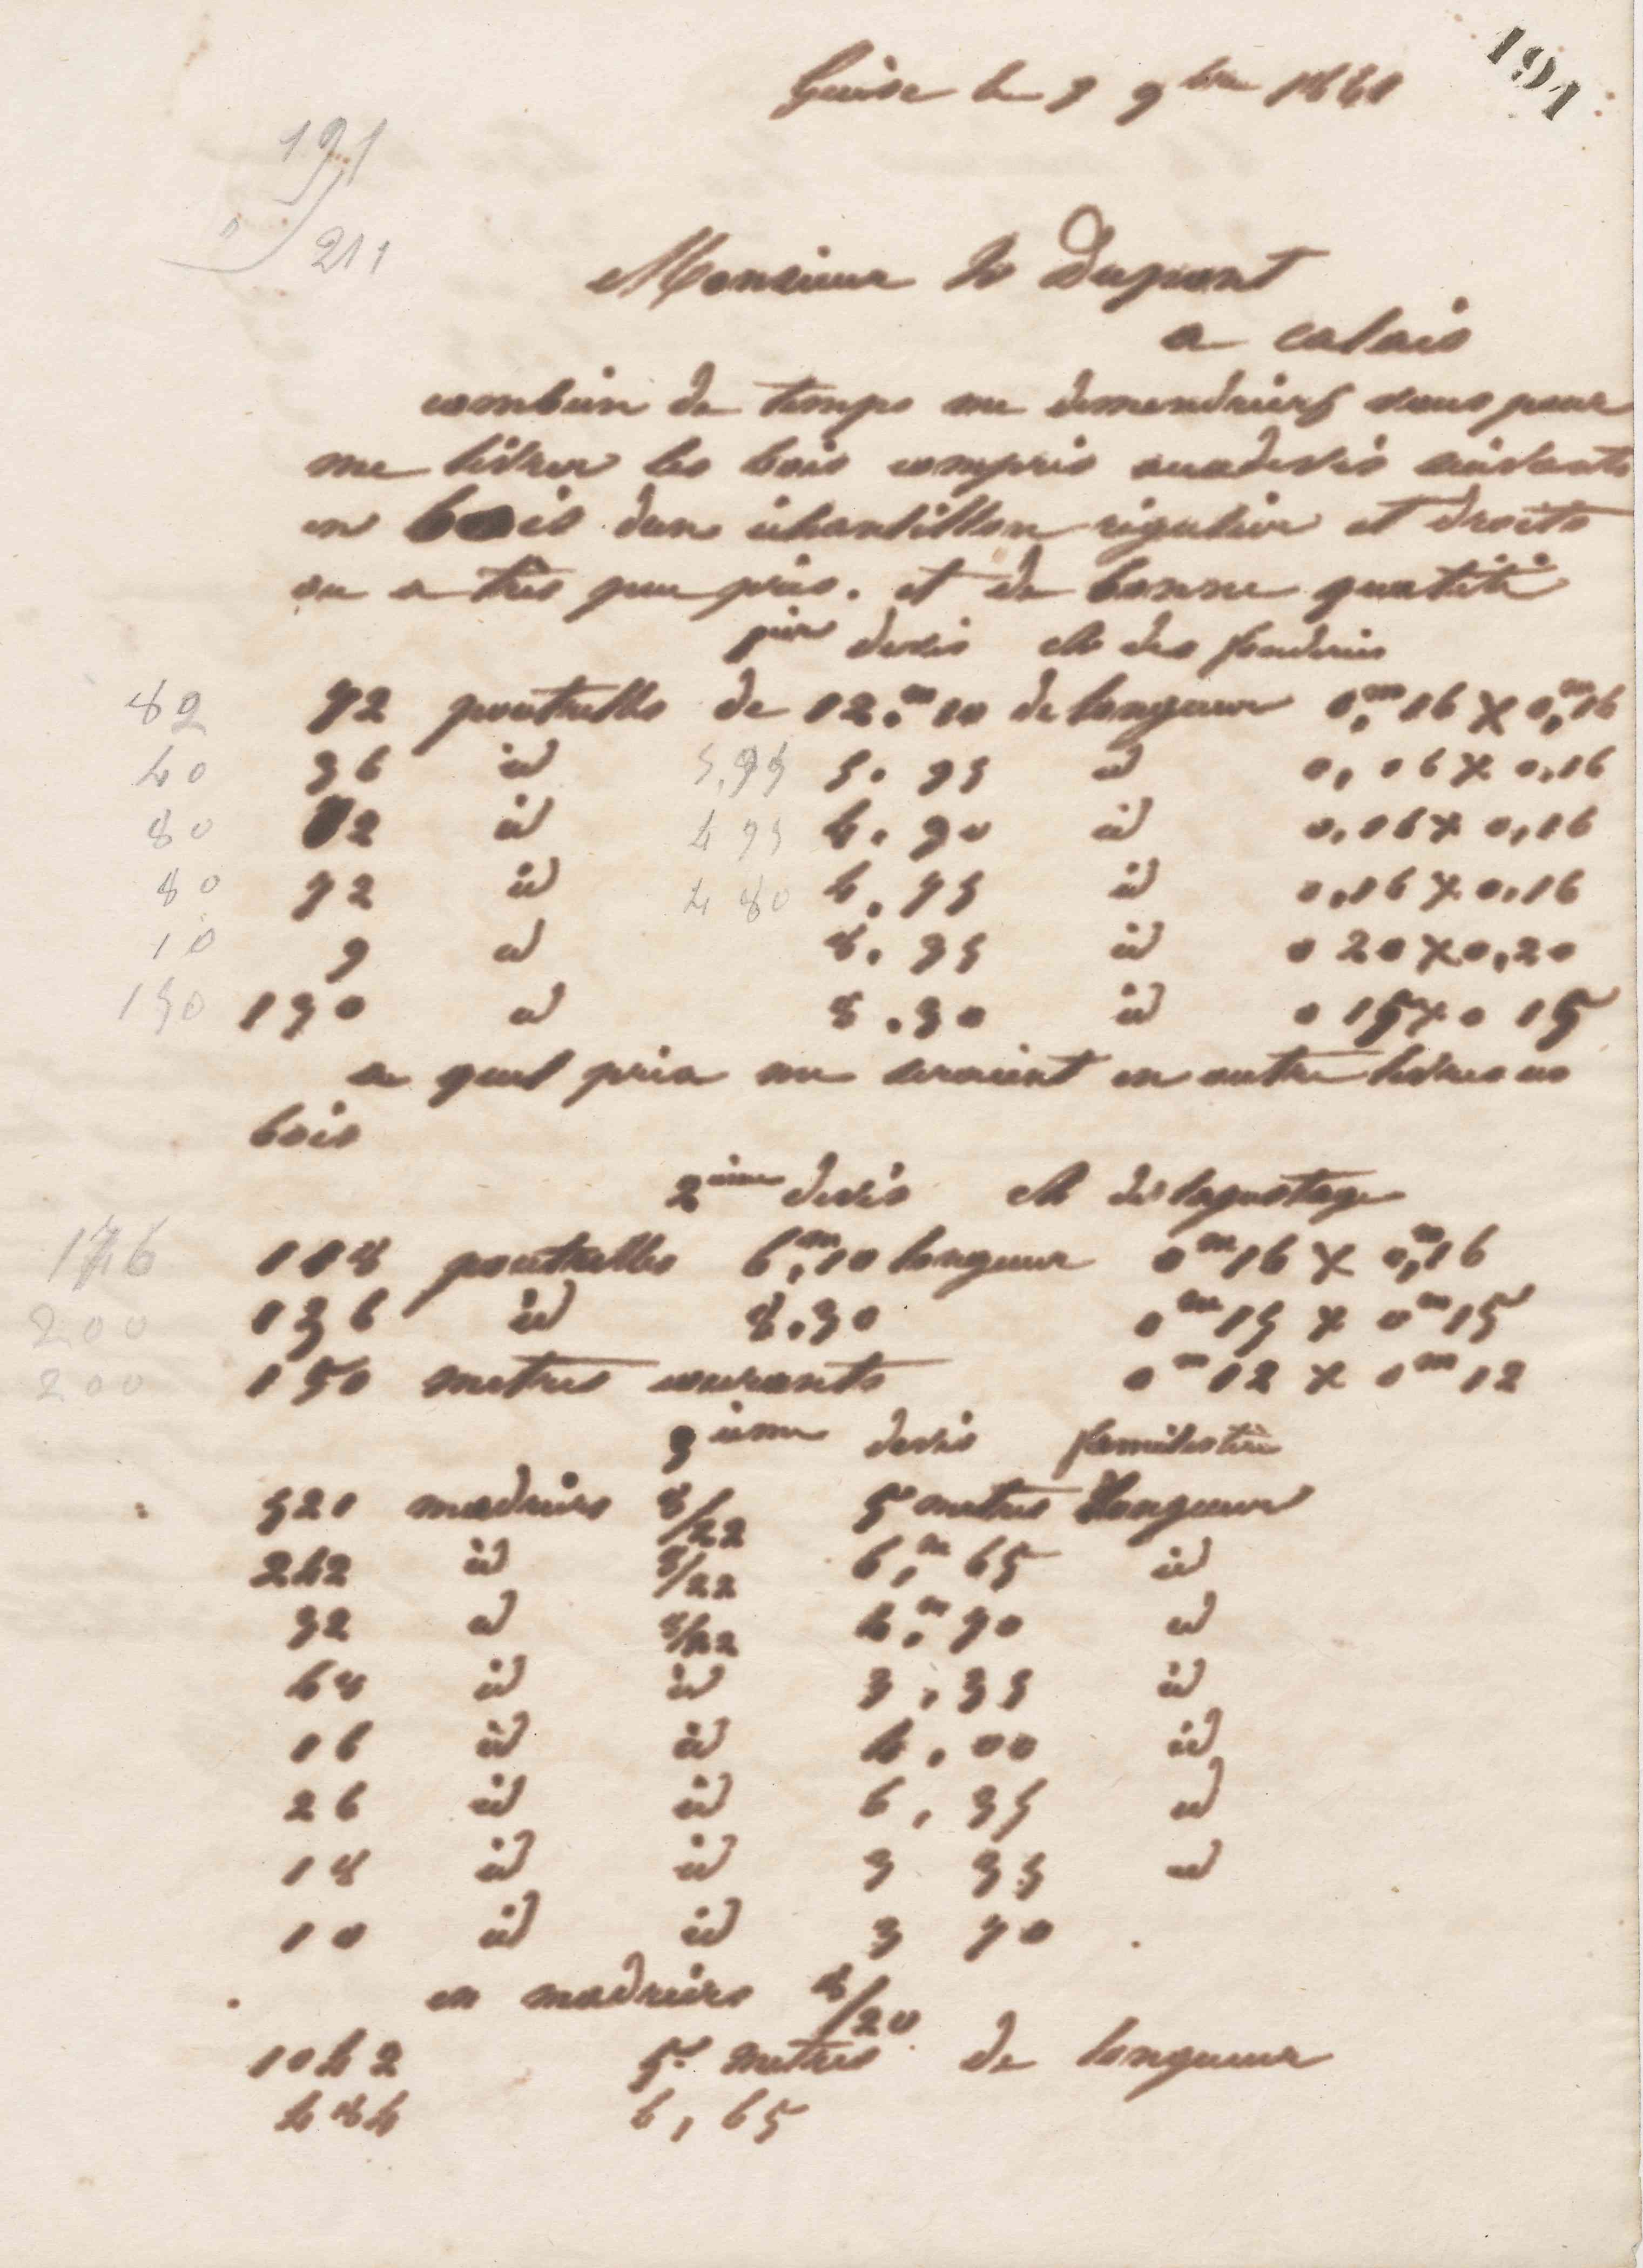 191
Guise le 9 9bre 1861
191
211
Monsieur Dupont
a calais
combien de temps me demenderiez vous pour
me livrer les bois compris auxdevis suivants
en bois dun échantillon régulier et droits
ou a très peu près. et de bonne qualité
pier devis des fonderies
82 72 poutrelles de 12.m10 de longueur 0,m16 x 0,m16
40 36 id 5,95 5.95 id 0,06 x 0,16
80 72 id 4 95 4.90 id 0,16 x 0,16
80 72 id 4 80 4.75 id 0,16 x 0,16
10 9 id 8.35 id 0 20 x 0,20
150 130 id 8.30 id 0 15 x 0 15
a quel prix me seraient en outre livres ces
bois
2ième devis
176 118 poutrelles 6,m10 longueur 0m16 x 0,m16
200 136 id 8.30 0m15 x 0m15
200 150 metres courants 0m12 x 0m12
3ieme devis familistère
520 madriers 8/22 5 metres longueur
242 id 8/22 6,m65 id
32 id 8/22 4,m70 id
68 id id 3,35 id
16 id id 4,00 id
26 id id 6,35 id
18 id id 3 35 id
10 id id 3 70
en madriers 8/20
1042 5 metres de longueur
484 6,65